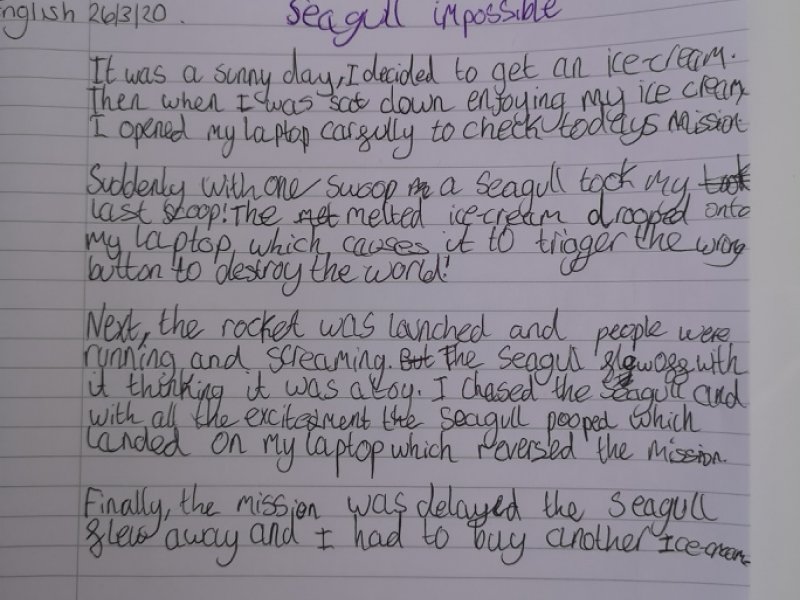 English 26/3/20. Seagull impossible
It was a sunny day, I decided to get an ice-cream.
Then when I was sat down enjoying my ice cream
I opened my laptop carfully to check todays mission
Suddenly with one swoop a seagull took my took
last scoop! The met melted ice-cream dropped onto
my laptop, which causes it to trigger the wrong
button to destroy the world!
Next, the rocket was lanched and people were
running and screaming. But The seagull flew off with
it thinking it was a toy. I chased the seagull and
with all the excitedment the seagull pooped which
landed on my laptop which reversed the mission.
Finally, the mission was delayed the seagull
flew away and I had to buy another ice-cream